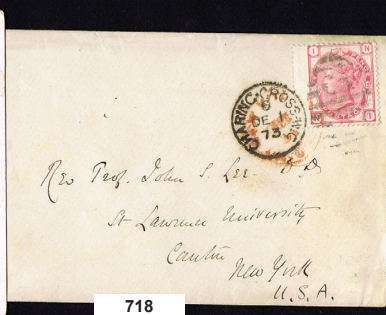 I N
CHARING·CROSS·W.C
6
DE 1
73
Rev Prof. John S. Lee D D
St Lawrence University
Canton
New York
U. S. A.
718